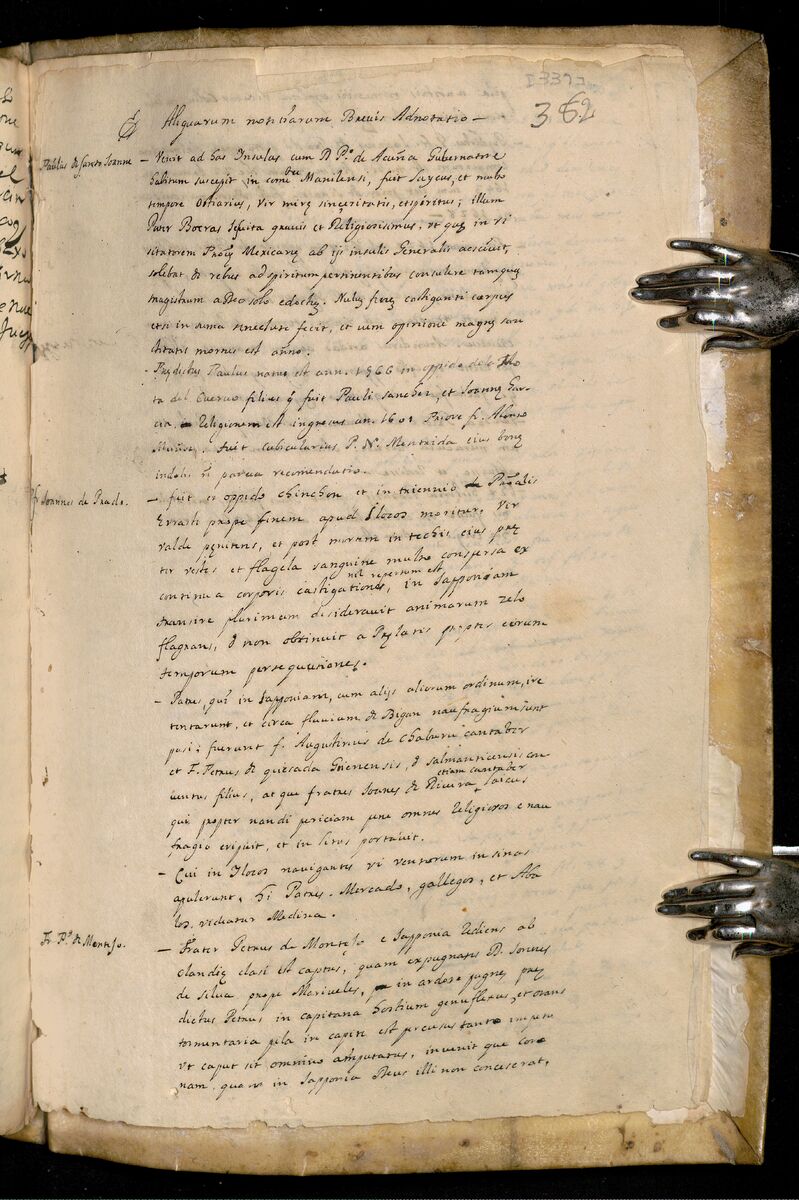 362
Aliquarum notitiarum Brevis Adnotatio —
Paulus de Santo Joanne
— Venit ad has Insulas cum D. Pº. de Acuña Gubernatore
habitum suscepit in conventu Manilensi, fuit Laycus, et multo
tempore Ostiarius, vir mirę sinçeritatis, et spiritus; illum
Pater Boeras Iesuita grauis et Religiosisimus, ut qui in vi
sitatorem Mexicanę ab ijs insulis Generalis
solebat de rebus ad spiritum pertinentibus consulere tamquā
magistrum a Deo solo edoctū. castiganti corpus
etsi in suma senectute fecit, et cum opinione magnę san
ctitatis mortuus est anño.
- Prędictus Paulus natus est ann. 1566 in oppido de la Mo
ta del Cuervo filius q̃ fuit Pauli sanchez, et Joannę Gar-
cia, Religionem est ingresus an. 1601 Priore f. Alonso
Muñoz. fuit cubicularius P. N. Mentrida eius bonę
indolis nõ parua recomendatio.
fr Joannes de Prado.
— fuit ex oppido chinchon et in triennio Prõalis
Errasti prope finem apud Ilocos moritur. Vir
valde pęnitens, et post mortem in techis eius pręter
vestes et flagela sanguine multo conspersa ex
continua corporis castigatione, nil repertum est, in Iapponiam
transire plurimum desiderauit animarum zelo
flagrans, & non obtinuit a Pręlatis propter eorum
temporum persequutiones.
— Patres, qui in Iapponiam, cum alijs aliorum ordinum, ire
tentarunt, et circa fluuium de Bigan naufragium sunt
pasi; fuerunt f. Augustinus de chaburu cantaber
et F. Petrus de quesada Gienensis, & salmanticensis con
uentus filius, at que fratres Joanes de Riuera etiam cantaber Laicus
qui propter nandi periciam pene omnes Religiosos e nau
fragio eripuit, et in litus portauit.
— Qui in Ylocos navigantes vi ventorum in sinas
apulerunt, hi Patres. Mercado, gallegos, et Aba
los. videatur Medina.
Fr. Pº de Montejo.
— Frater Petrus de Montejo e Iapponia rediens ab
olandię clasi est captus, quam expugnatis D. Joannes
de silua prope Mariueles, in ardore pugnę prę
dictus Petrus in capitana hostium genuflexus, et orans
tormentaria pila in capite est percusus tanto impetu
vt caput sit omnino amputatus, inuenit que coro
nam, quam in Iapponia Deus illi non conceserat.